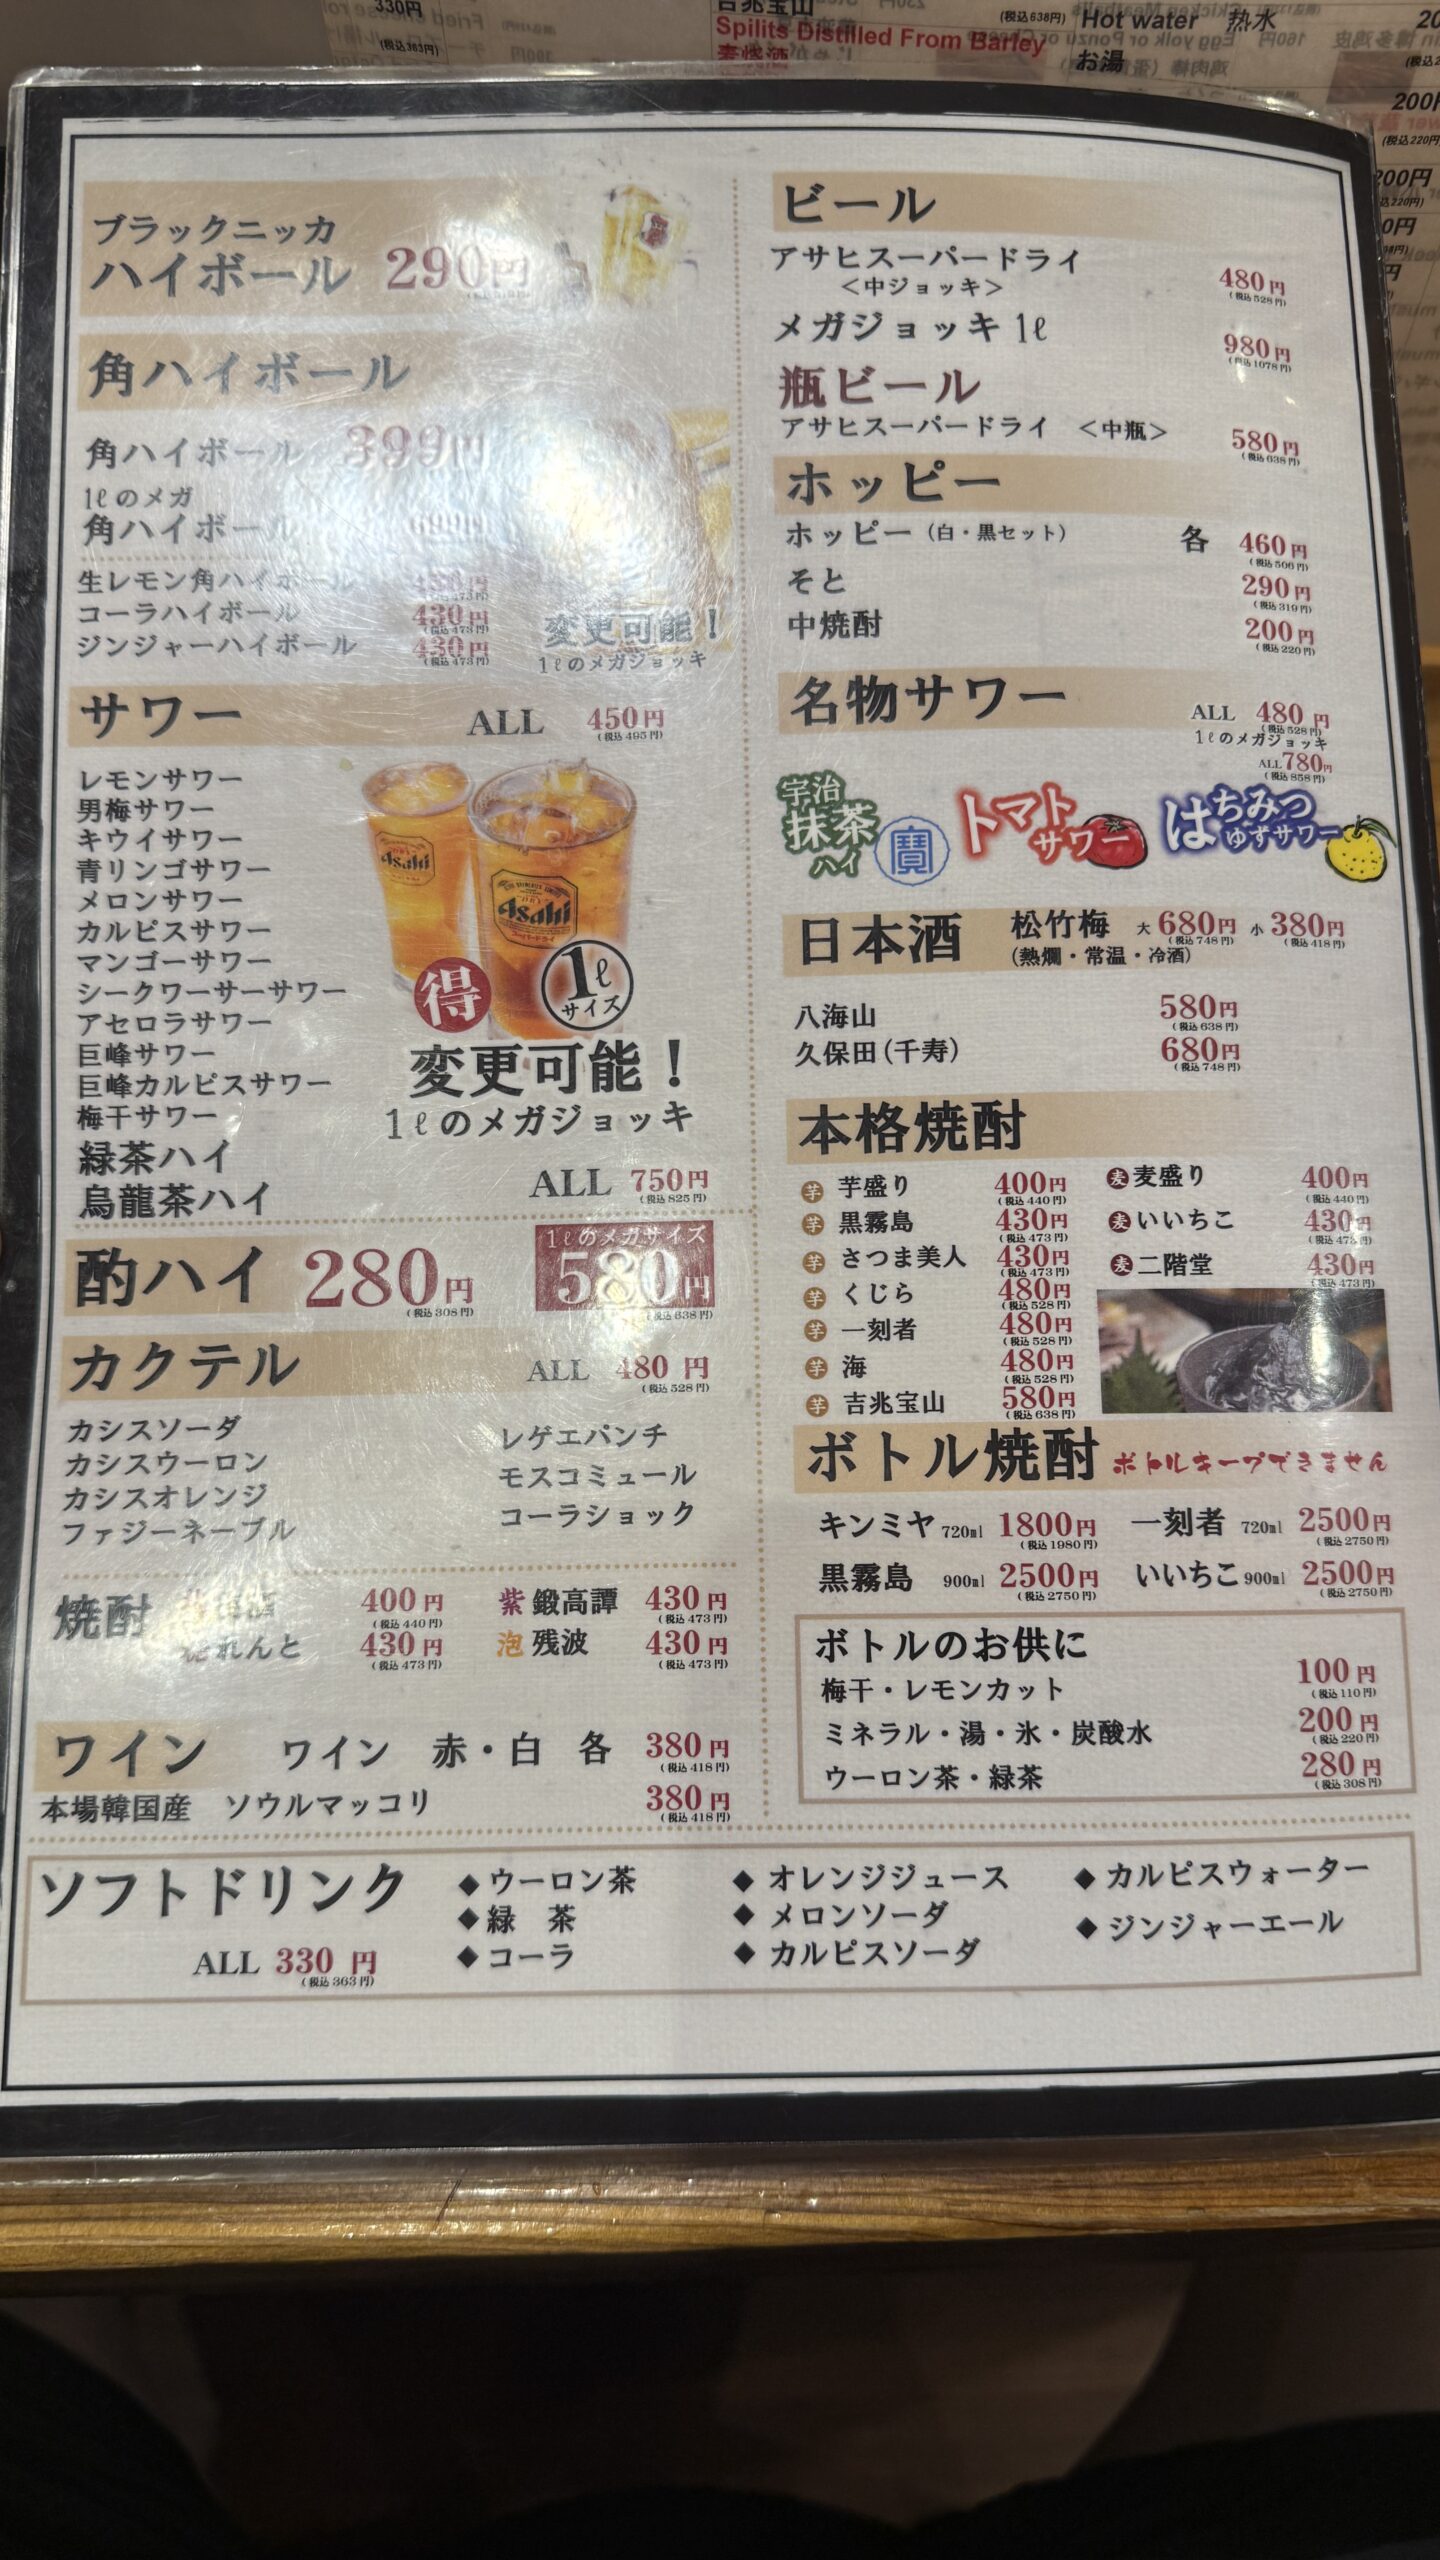 330円
(税込363円)
吉兆宝山
(税込638円)
Spilits Distilled From Barley
麦焼酒
Hot water 热水
お湯
200円
(税込220円)
ブラックニッカ
ハイボール 290円
角ハイボール
角ハイボール 399円
1ℓのメガ
角ハイボール
生レモン角ハイボール
コーラハイボール 430円
(税込473円)
ジンジャーハイボール 430円
(税込473円)
変更可能!
1ℓのメガジョッキ
サワー ALL 450円
(税込495円)
レモンサワー
男梅サワー
キウイサワー
青リンゴサワー
メロンサワー
カルピスサワー
マンゴーサワー
シークワーサーサワー
アセロラサワー
巨峰サワー
巨峰カルピスサワー
梅干サワー
緑茶ハイ
烏龍茶ハイ
Asahi
Asahi
得
1ℓ
サイズ
変更可能!
1ℓのメガジョッキ
ALL 750円
(税込825円)
酌ハイ 280円
(税込308円)
1ℓのメガサイズ
580円
(税込638円)
カクテル ALL 480円
(税込528円)
カシスソーダ
カシスウーロン
カシスオレンジ
ファジーネーブル
レゲエパンチ
モスコミュール
コーラショック
焼酎
400円
(税込440円)
れんと 430円
(税込473円)
紫 鍛高譚 430円
(税込473円)
泡 残波 430円
(税込473円)
ワイン ワイン 赤・白 各 380円
(税込418円)
本場韓国産 ソウルマッコリ 380円
(税込418円)
ビール
アサヒスーパードライ
<中ジョッキ> 480円
(税込528円)
メガジョッキ 1ℓ 980円
(税込1078円)
瓶ビール
アサヒスーパードライ <中瓶> 580円
(税込638円)
ホッピー
ホッピー(白・黒セット) 各 460円
(税込506円)
そと 290円
(税込319円)
中焼酎 200円
(税込220円)
名物サワー ALL 480円
(税込528円)
1ℓのメガジョッキ
ALL 780円
(税込858円)
宇治
抹茶
ハイ
寶
トマト
サワー
はちみつ
ゆずサワー
日本酒 松竹梅 大 680円 小 380円
(税込748円) (税込418円)
(熱燗・常温・冷酒)
八海山 580円
(税込638円)
久保田(千寿) 680円
(税込748円)
本格焼酎
芋 芋盛り 400円
(税込440円)
芋 黒霧島 430円
(税込473円)
芋 さつま美人 430円
(税込473円)
芋 くじら 480円
(税込528円)
芋 一刻者 480円
(税込528円)
芋 海 480円
(税込528円)
芋 吉兆宝山 580円
(税込638円)
麦 麦盛り 400円
(税込440円)
麦 いいちこ 430円
(税込473円)
麦 二階堂 430円
(税込473円)
ボトル焼酎 ボトルキープできません
キンミヤ 720ml 1800円
(税込1980円)
一刻者 720ml 2500円
(税込2750円)
黒霧島 900ml 2500円
(税込2750円)
いいちこ 900ml 2500円
(税込2750円)
ボトルのお供に
梅干・レモンカット 100円
(税込110円)
ミネラル・湯・氷・炭酸水 200円
(税込220円)
ウーロン茶・緑茶 280円
(税込308円)
ソフトドリンク
ALL 330円
(税込363円)
◆ウーロン茶
◆緑 茶
◆コーラ
◆オレンジジュース
◆メロンソーダ
◆カルピスソーダ
◆カルピスウォーター
◆ジンジャーエール